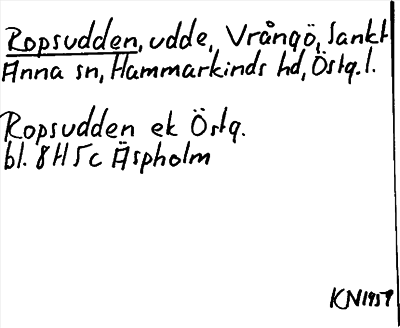 Ropsudden, udde, Vrångö, Sankt
Anna sn, Hammarkinds hd, Östg.l.
Ropsudden ek Östg.
bl. 8H5c Äspholm
KN1959